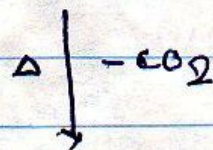 Δ -CO2